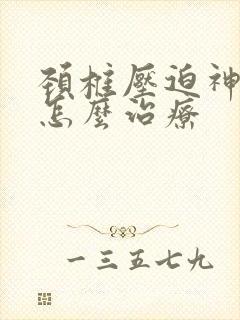 頚椎壓迫神
怎麼治療
一三五七九